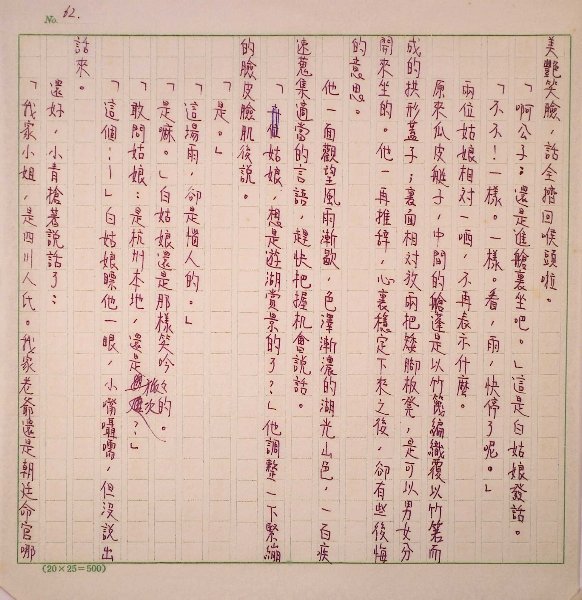 No. 62.
美艷笑臉，話全擠回喉頭啦。
「啊公子：還是進艙裏坐吧。」這是白姑娘發話。
「不不！一樣。一樣。看，雨，快停了呢。」
兩位姑娘相對一哂，不再表示什麼。
原來瓜皮艇子，中間的艙蓬是以竹篾編織覆以竹箬而
成的拱形蓋子；裏面相對放兩把矮腳板凳，是可以男女分
開來坐的。他一再推辞，心裏穩定下來之後，卻有些後悔
的意思。
他一面觀望風雨漸歇，色澤漸濃的湖光山色，一百疾
速蒐集適當的言語，趕快把握机會說話。
位姑娘，想是遊湖賞景的了？」他調整一下緊繃
的臉皮臉肌後說。
「是。」
「這湯雨，卻是惱人的。」
「是嘛。」白姑娘還是那樣笑吟吟的。
「敢問姑娘：是杭州本地，還是？」
「這個……」白姑娘瞟他一眼，小嘴囁嚅，但沒說出
話來。
還好，小青搶著說話了：
「我家小姐，是四川人氏。我家老爺還是朝廷命官哪
(20×25=500)